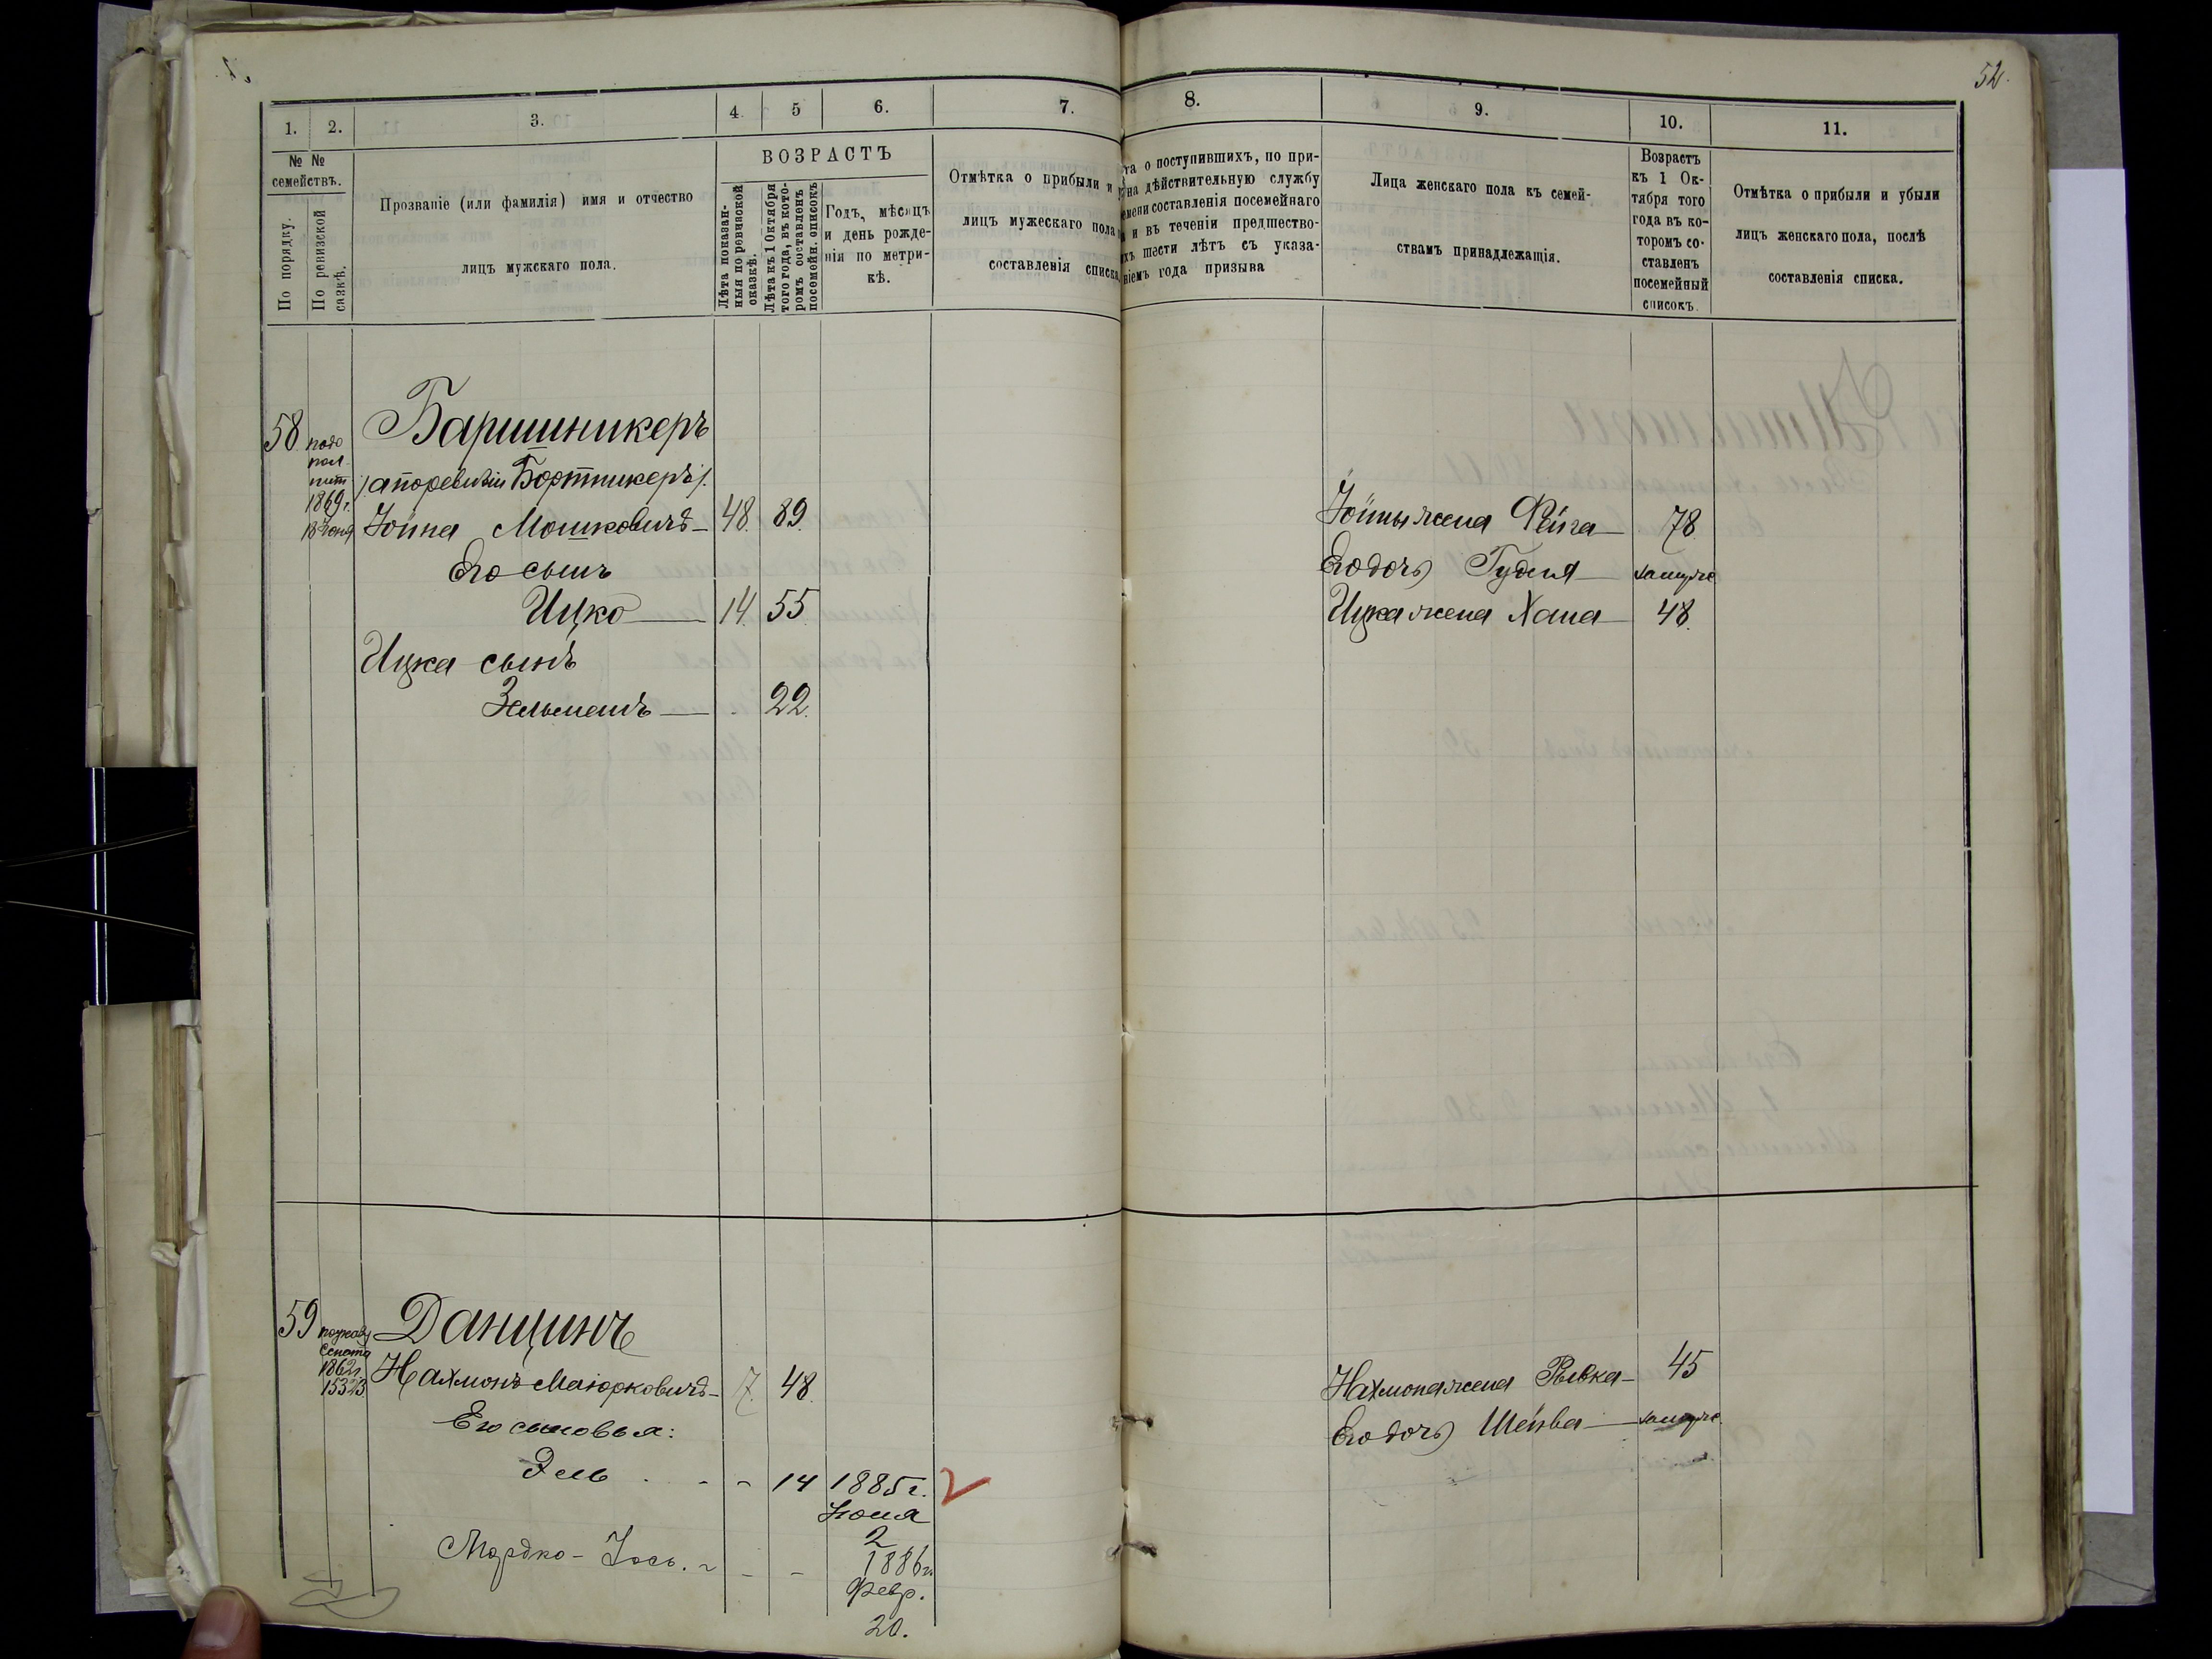 52.
1.
2.
3.
4.
5
6.
7.
8.
9.
10.
11.
№ №
семействъ.
По порядку.
По ревизской
сказкѣ.
Прозваніе (или фамилія) имя и отчество
лицъ мужскаго пола.
ВОЗРАСТЪ
Лѣта показан-
ныя по ревизской
сказкѣ.
Лѣта къ 1 Октября
того года, въ кото-
ромъ составленъ
посемейн. списокъ
Годъ, мѣсяцъ
и день рожде-
нія по метри-
кѣ.
Отмѣтка о прибыли и
лицъ мужескаго пола
составленія списка
та о поступившихъ, по при-
на дѣйствительную службу
емени составленія посемейнаго
и въ теченіи предшество-
хъ шести лѣтъ съ указа-
ніемъ года призыва
Лица женскаго пола къ семей-
ствамъ принадлежащія.
Возрастъ
къ 1 Ок-
тября того
года въ ко-
торомъ со-
ставленъ
посемейный
списокъ.
Отмѣтка о прибыли и убыли
лицъ женскаго пола, послѣ
составленія списка.
58
1869 г.
18 Іюня
Баршникеръ
/а по ревизіи Бортникеръ/.
Іойна Мошковичъ 48. 89.
Его сынъ
Ицко 14. 55
Ицка сынъ
Зельманъ - 22.
Іойны жена Фейга 78.
Его дочь Гудля замуже.
Ицка жена Хана 48.
59
по указу
Сената
1862 г.
15323
Данцинъ
Нахмонъ Маюрковичъ 7. 48.
Его сыновья:
Эль - - 14 1885 г.
Іюня
2
Мордко-Іось. - - 1886 г.
Февр.
20.
Нахмона жена Рывка 45
Его дочь Шейва замуже.